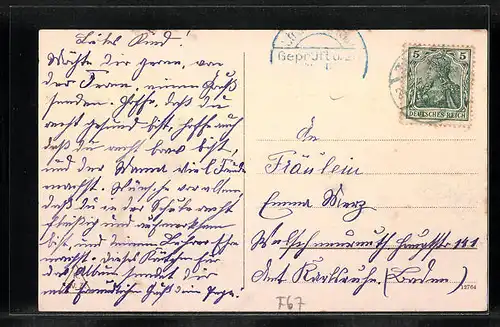 Liebes Kind!
Möchte Dir gerne, von
der Ferne, einen Gruß
senden. Hoffe, daß Du
recht gesund bist, hoffe auch
daß du recht brav bist,
und der Mama viel Freude
machst. Wünsche vor allem,
daß du in der Schule recht
fleißig und aufmerksam
bist, und deinem Lehrer Ehre
machst. Dieses Kärtchen für
das Album sendet dir
mit freundlichem Gruß dein
Geprüft u. z
5 5
DEUTSCHES REICH
An
Fräulein
Emma Merz
Welschneureuth Hauptstr 111
Amt Karlsruhe. (Baden)
12764
F67